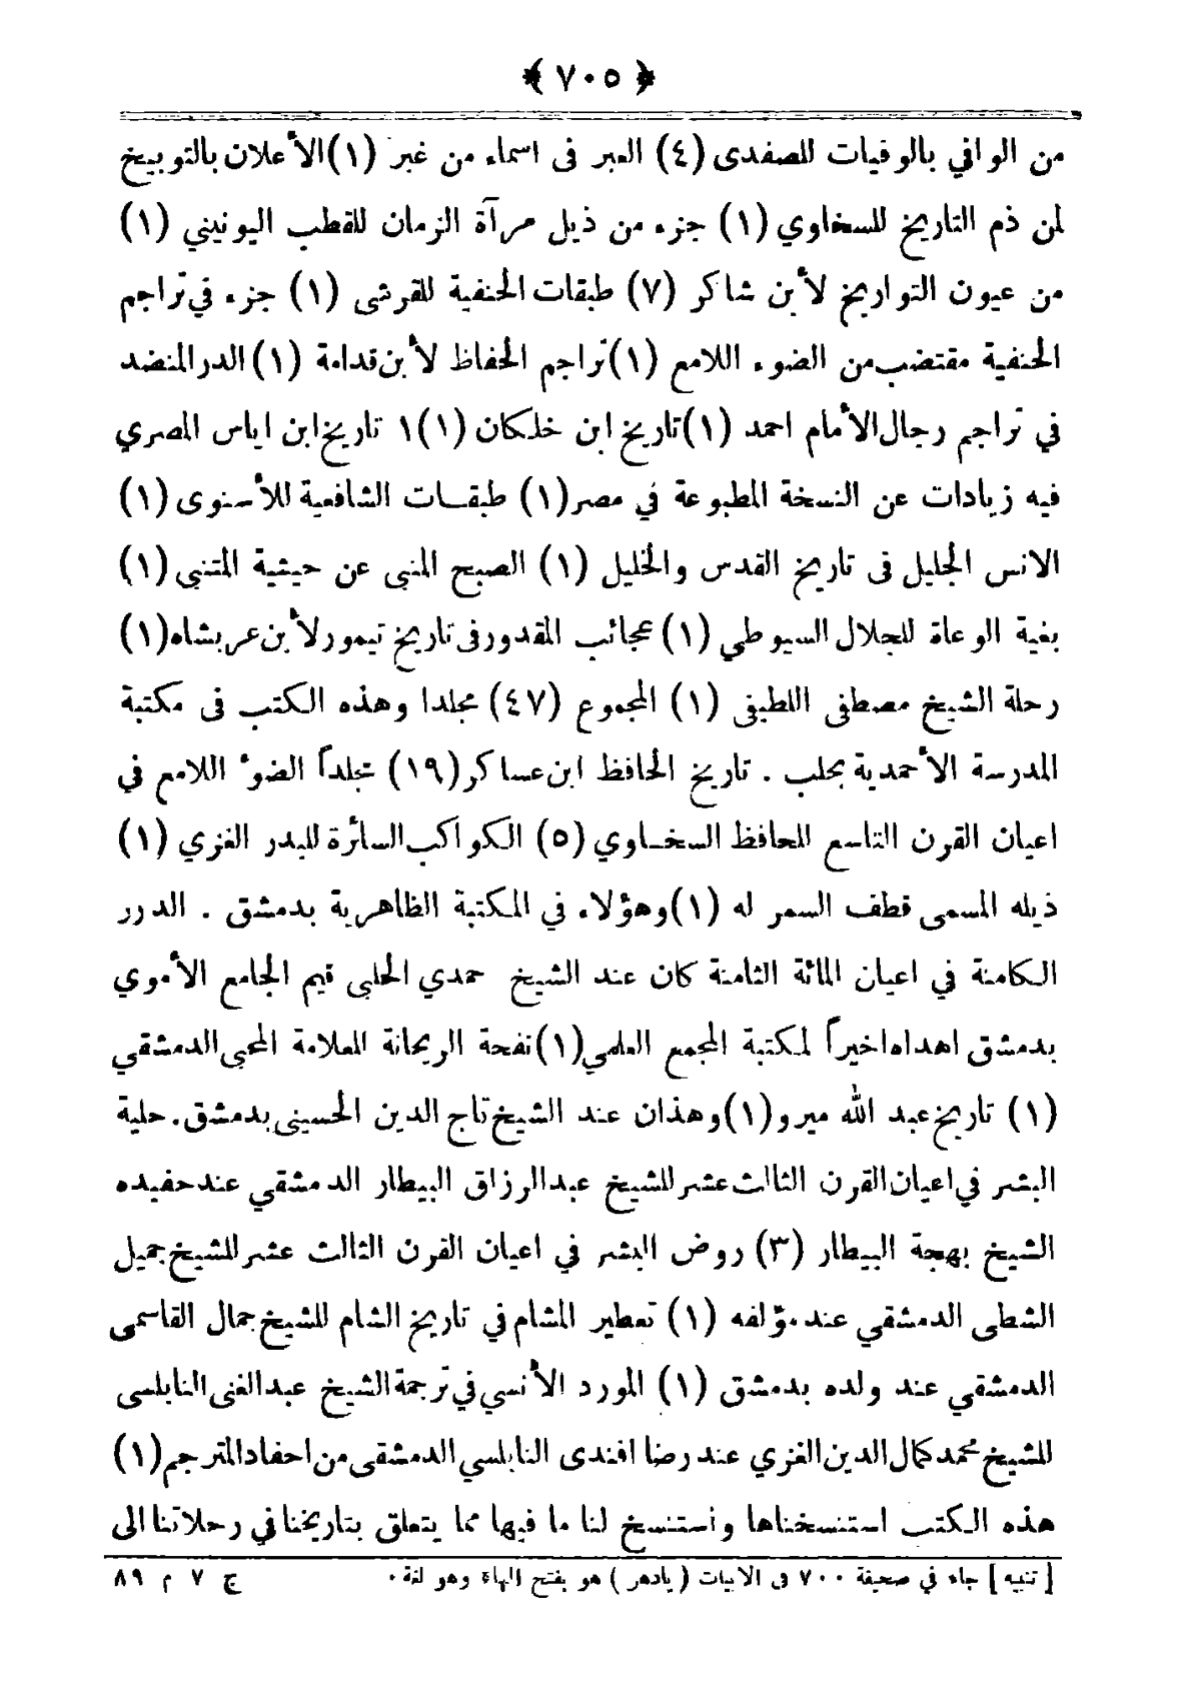 ﴿ ٧٠٥ ﴾
من الوافي بالوفيات للصفدى (٤) العبر فى اسماء من غبر (١) الأعلان بالتوبيخ
لمن ذم التاريخ للسخاوي (١) جزء من ذيل مرآة الزمان للقطب اليونيني (١)
من عيون التواريخ لأبن شاكر (٧) طبقات الحنفية للقرشى (١) جزء في تراجم
الحنفية مقتضب من الضوء اللامع (١) تراجم الحفاظ لأبن قدامة (١) الدر المنضد
في تراجم رجال الأمام احمد (١) تاريخ ابن خلكان (١) ١ تاريخ ابن اياس المصري
فيه زيادات عن النسخة المطبوعة في مصر (١) طبقات الشافعية للأسنوى (١)
الانس الجليل فى تاريخ القدس والخليل (١) الصبح المنبى عن حيثية المتنبى (١)
بغية الوعاة للجلال السيوطي (١) عجائب المقدور فى تاريخ تيمور لأبن عربشاه (١)
رحلة الشيخ مصطفى اللطيفى (١) المجموع (٤٧) مجلدا وهذه الكتب فى مكتبة
المدرسة الأحمدية بحلب . تاريخ الحافظ ابن عساكر (١٩) مجلداً الضوء اللامع في
اعيان القرن التاسع للحافظ السخاوي (٥) الكواكب السائرة للبدر الغزي (١)
ذيله المسمى قطف السمر له (١) وهؤلاء في المكتبة الظاهرية بدمشق . الدرر
الكامنة في اعيان المائة الثامنة كان عند الشيخ حمدي الحلبى قيم الجامع الأموي
بدمشق اهداه اخيراً لمكتبة المجمع العلمي (١) نفحة الريحانة للعلامة المحبى الدمشقي
(١) تاريخ عبد الله ميرو (١) وهذان عند الشيخ تاج الدين الحسينى بدمشق. حلية
البشر في اعيان القرن الثالث عشر للشيخ عبدالرزاق البيطار الدمشقي عند حفيده
الشيخ بهجة البيطار (٣) روض البشر في اعيان القرن الثالث عشر للشيخ جميل
الشطى الدمشقي عند مؤلفه (١) تعطير المشام في تاريخ الشام للشيخ جمال القاسمى
الدمشقي عند ولده بدمشق (١) المورد الأنسي في ترجمة الشيخ عبدالغنى النابلسى
للشيخ محمد كمال الدين الغزي عند رضا افندى النابلسي الدمشقى من احفاد المترجم (١)
هذه الكتب استنسخناها واستنسخ لنا ما فيها مما يتعلق بتاريخنا في رحلاتنا الى
[ تنبيه ] جاء في صحيفة ٧٠٠ فى الابيات ( يادهر ) هو بفتح الهاء وهو لغة . ج ٧ م ٨٩